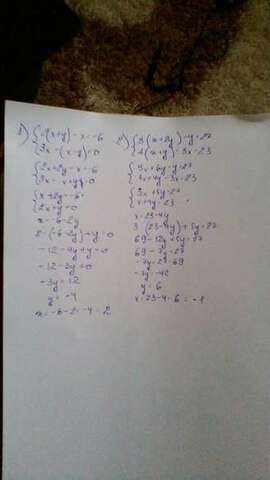 в) { 2(x+y)-x=-6
{ 3x-(x-y)=0
{ 2x+2y-x=-6
{ 3x-x+y=0
{ x+2y=-6
{ 2x+y=0
x=-6-2y
2·(-6-2y)+y=0
-12-4y+y=0
-12-3y=0
-3y=12
y=-4
x=-6-2·-4=2
{ 3(x+2y)-y=27
{ 4(x+y)-3x=23
{ 3x+6y-y=27
{ 4x+4y-3x=23
{ 3x+5y=27
{ x+4y=23
x=23-4y
3·(23-4y)+5y=27
69-12y+5y=27
69-7y=27
-7y=27-69
-7y=-42
y=6
x=23-4·6=-1